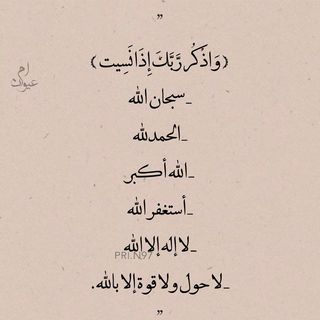 ”
﴿وَاذْكُر رَّبَّكَ إِذَا نَسِيت﴾
ـ سبحان الله
ـ الحمدلله
ـ الله أكبر
ـ أستغفر الله
ـ لا إله إلا الله
ـ لا حول ولا قوة إلا بالله.
”
PRI.N97